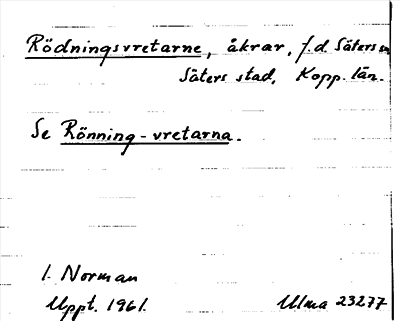 Rödningsvretarne, åkrar, f.d. Säters sn
Säters stad, Kopp. län.
Se Rönning-vretarna.
I. Norman
Uppt. 1961.
Ulma 23277